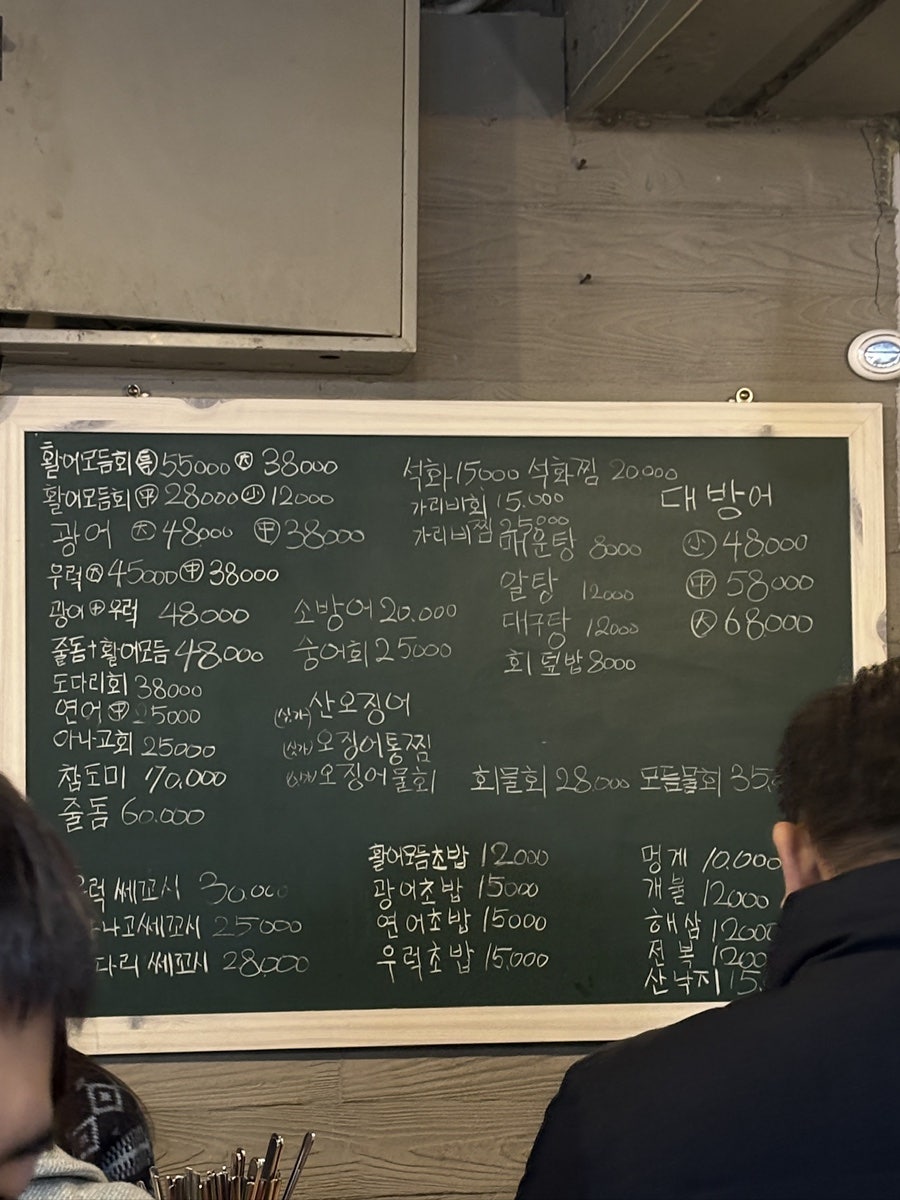 활어모듬회 ㊕ 55000 ㊅ 38000
활어모듬회 ㊥ 28000 ㊛ 12000
광어 ㊅ 48000 ㊥ 38000
우럭 ㊅ 45000 ㊥ 38000
광어+우럭 48000
줄돔+활어모듬 48.000
도다리회 38000
연어 ㊥ 25000
아나고회 25000
참도미 170.000
줄돔 60.000
석화 15000 석화찜 20.000
가리비회 15.000
가리비찜 25000
매운탕 8000
알탕 12000
대구탕 12000
회덮밥 8000
대방어
小 48000
中 58000
大 68000
소방어 20.000
숭어회 25000
(싯가) 산오징어
(싯가) 오징어통찜
(싯가) 오징어물회
회물회 28.000 모듬물회
쎄꼬시 30.000
쎄꼬시 25000
쎄꼬시 28000
활어모듬초밥 12000
광어초밥 15000
연어초밥 15000
우럭초밥 15,000
멍게 10.000
개불 12000
해삼 12000
전복
산낙지